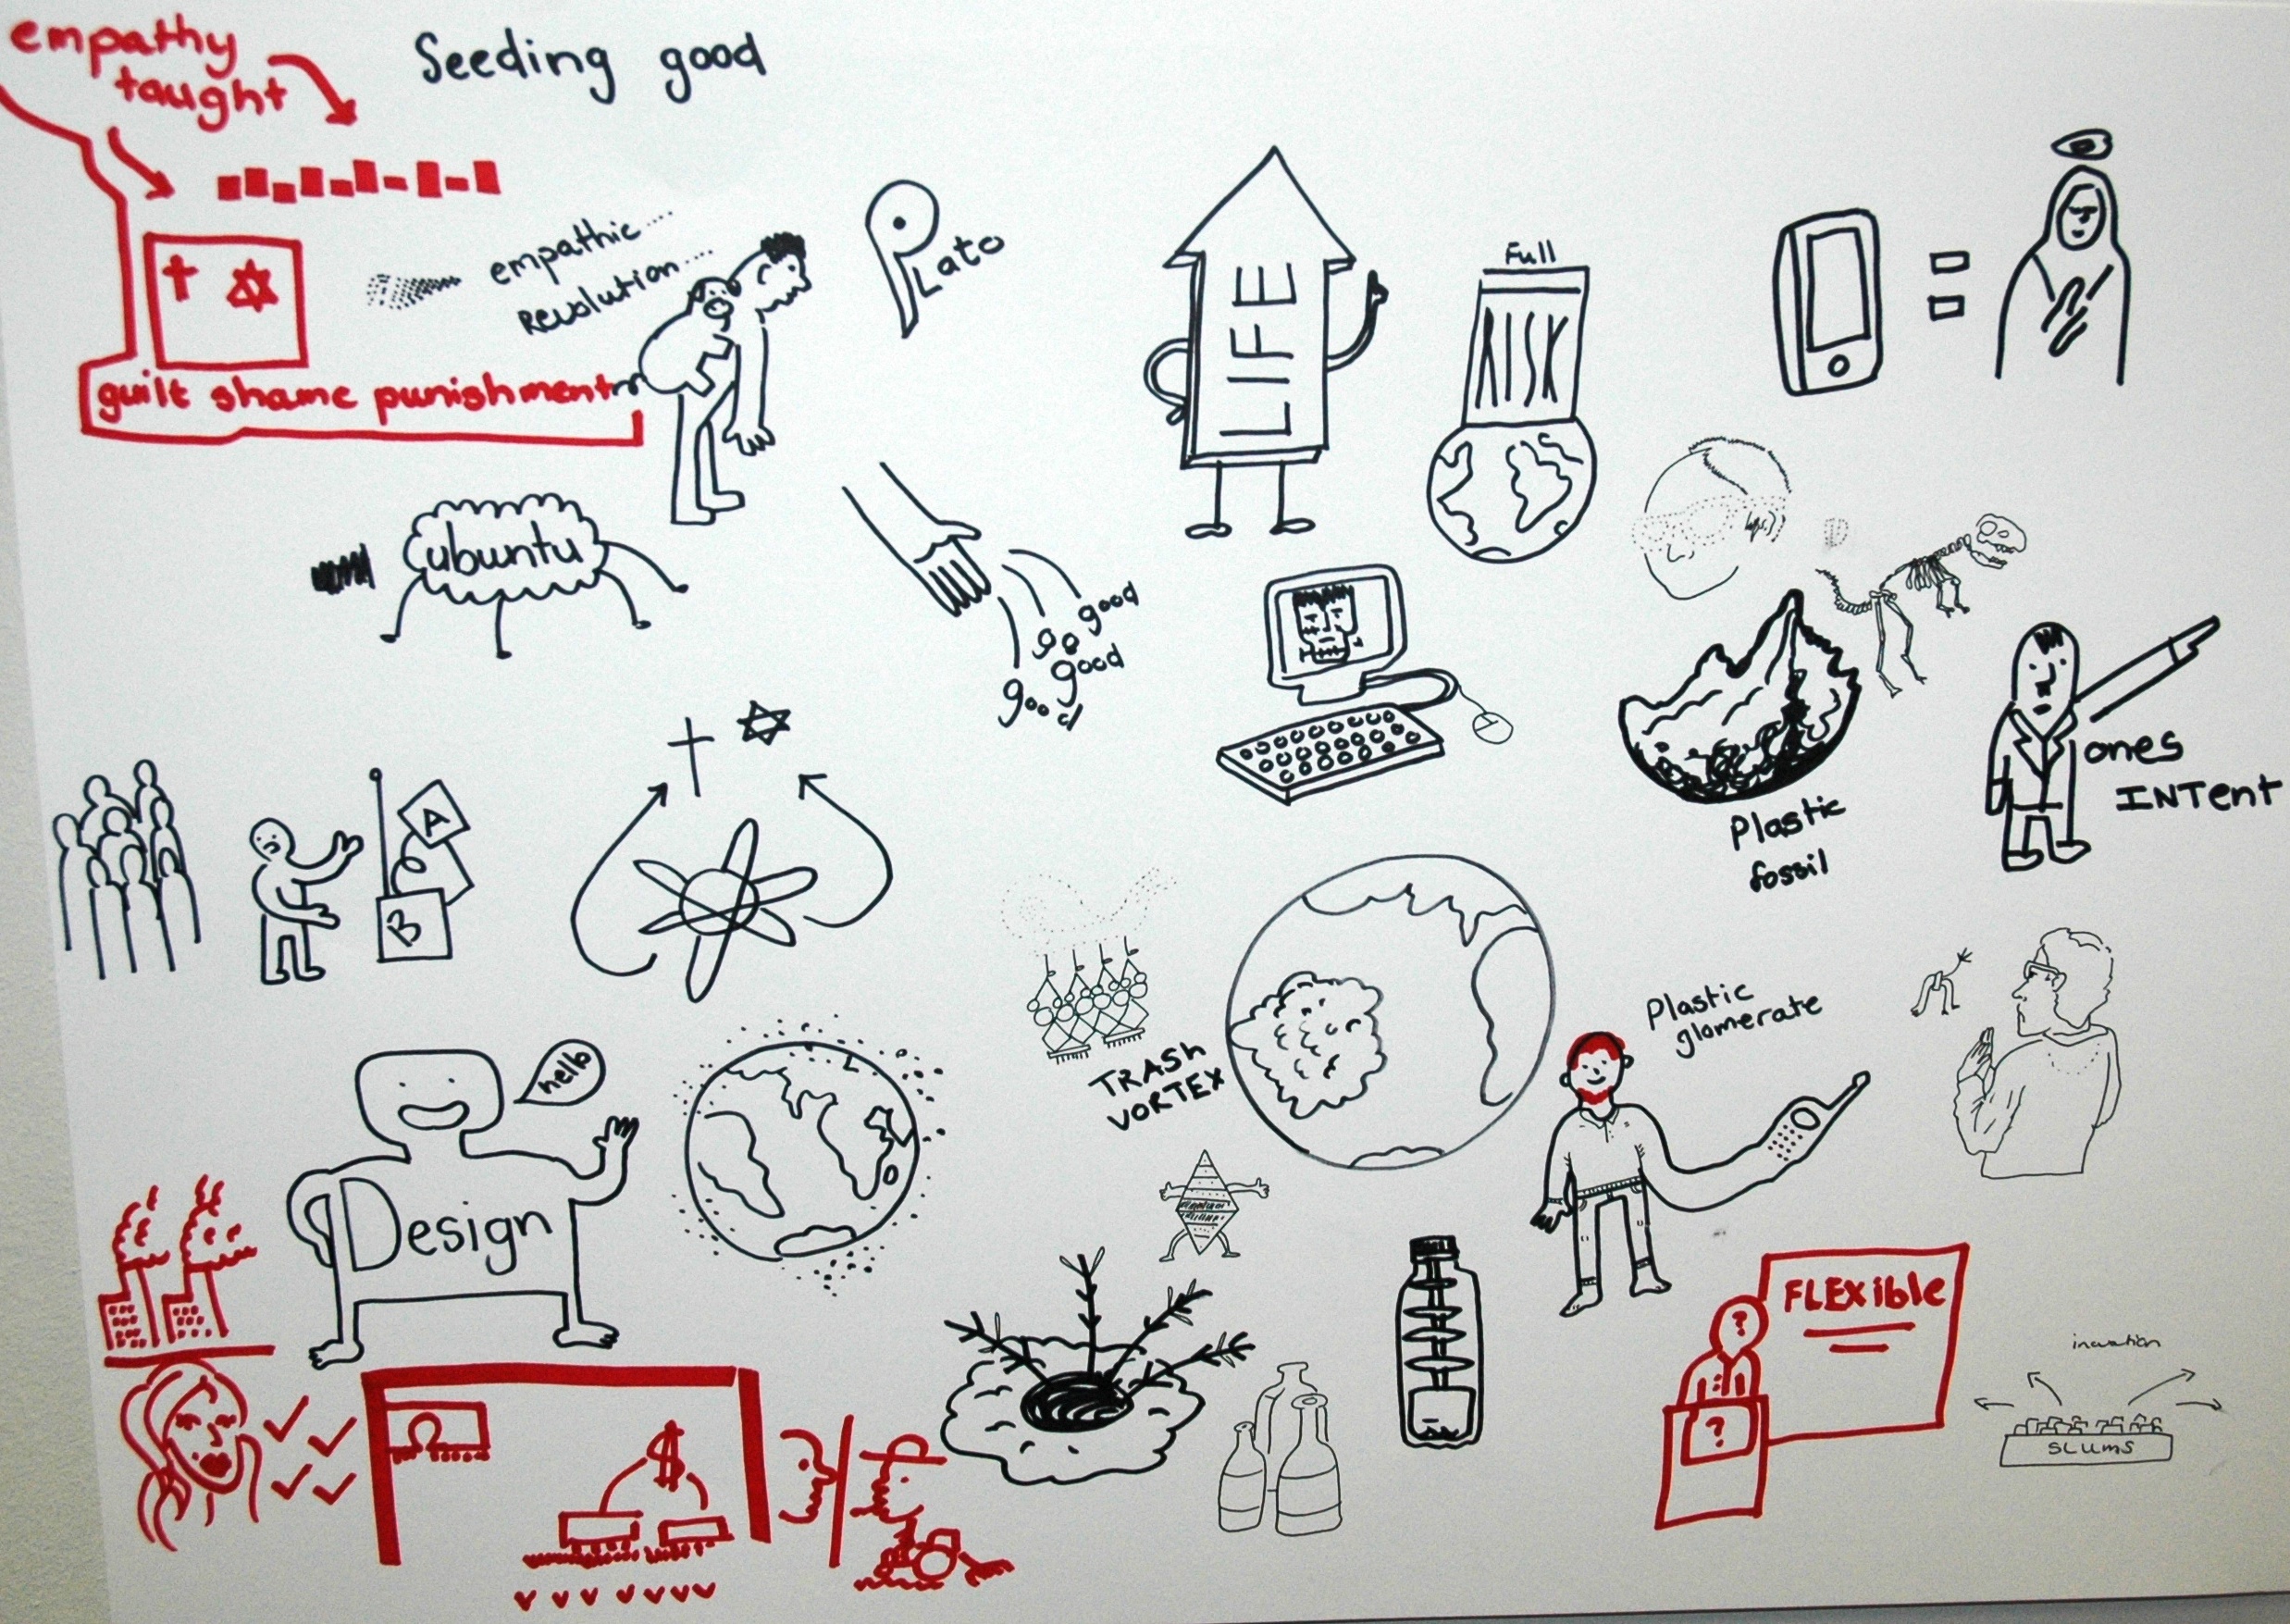 empathy
taught
Seeding good
empathic
Revolution
guilt shame punishment
Plato
LIFE
Full
RISK
ubuntu
good
go
good
good
Plastic
fossil
ones
INTent
A
B
hello
Design
TRASH
VORTEX
Plastic
glomerate
$
?
?
FLEXible
SLUMS